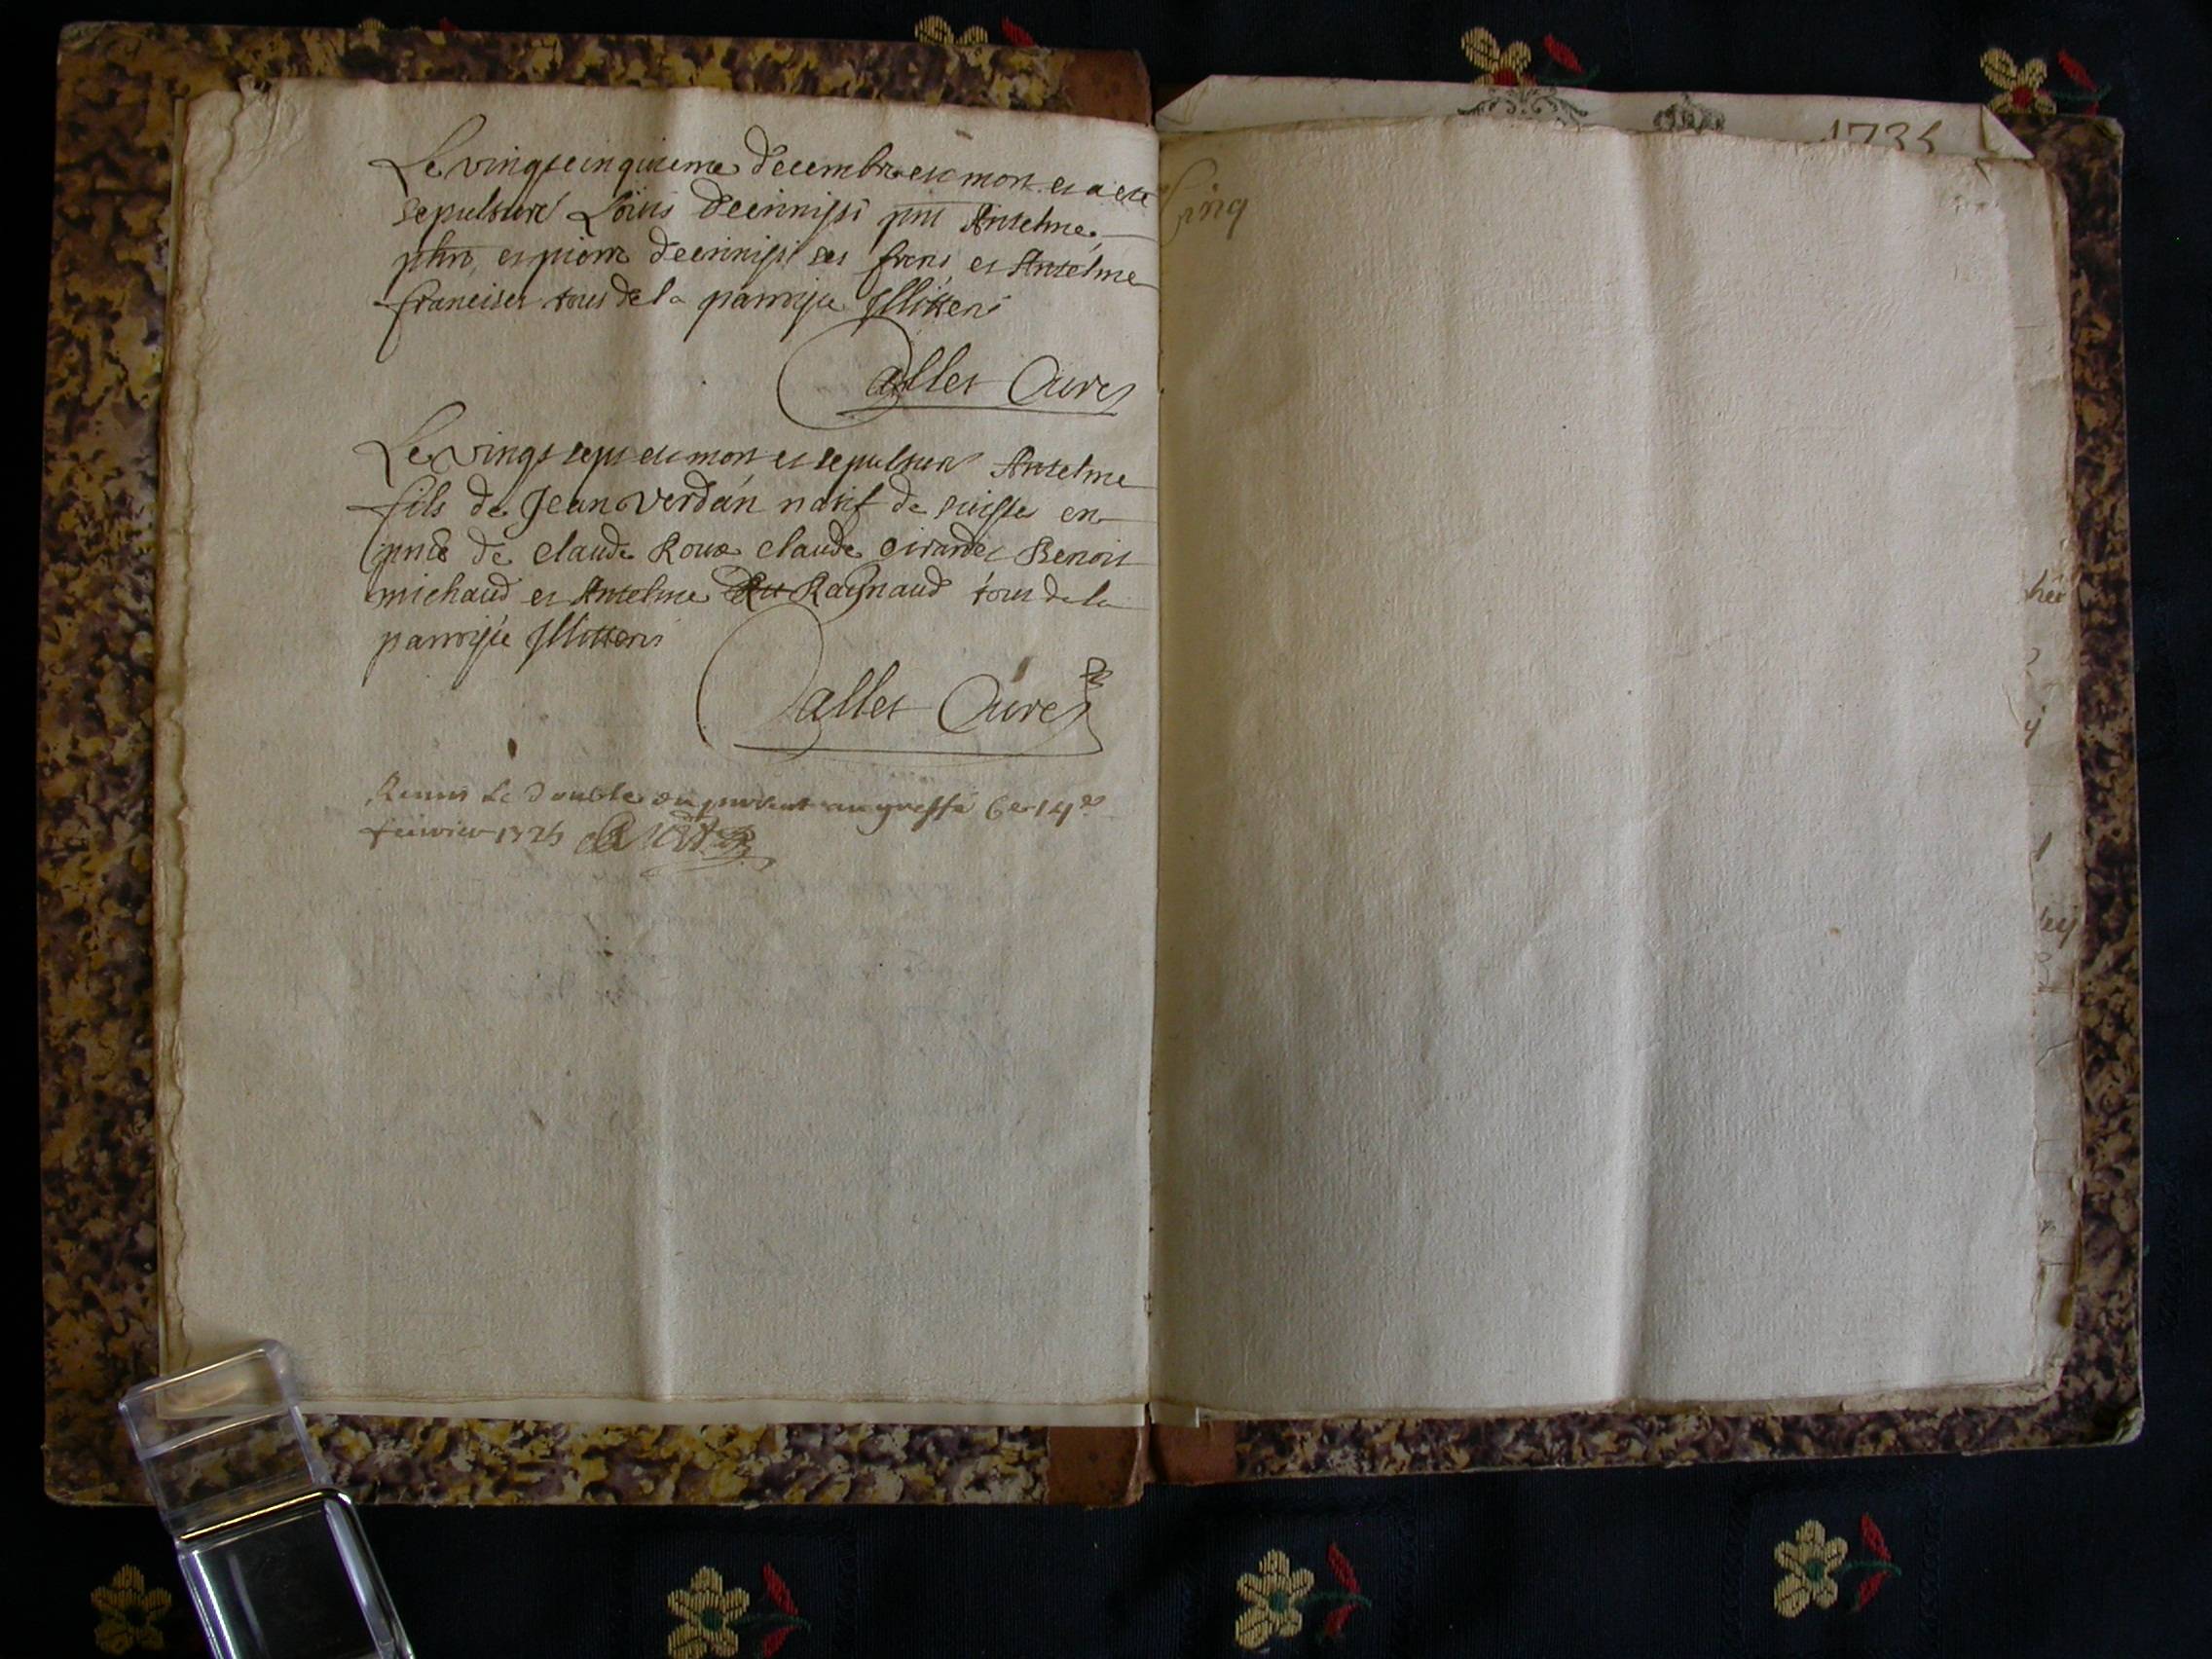 Le vingtcinquieme decembre est mort et a este
sepulturé Loüis deeinnissi pnt Anthelme
phre, et pierre deeinnissi ses freres et Antelme
franciset tous de la parroisse Illitterés
Ballet Curé
Le vingt sept est mort et sepulturé Antelme
fils de Jean Verdan natif de suisse en
pnce de claude Roux claude Girardet Benoit
michaud et Antelme Raynaud tous de la
parroisse Illitterés
Ballet Curé
Remis le double du present au greffe ce 14e
fevrier
cinq
1735